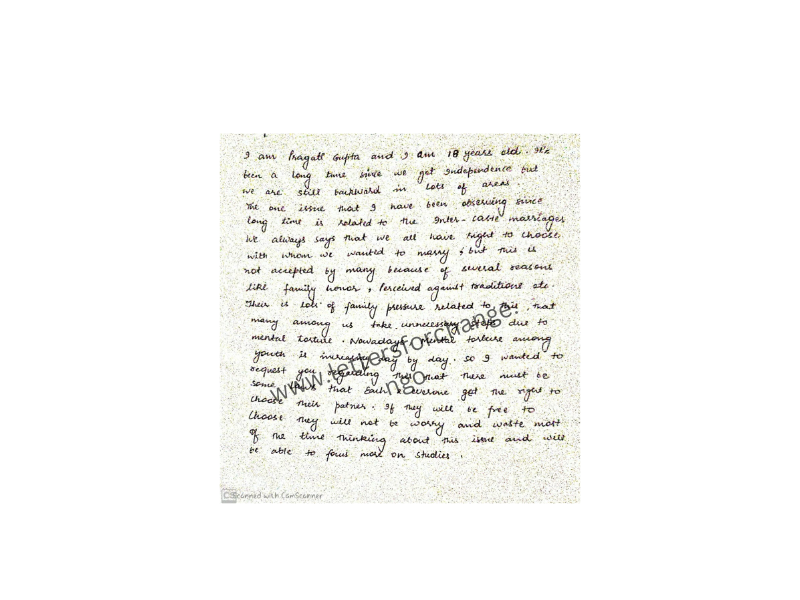 I am Pragati Gupta and I am 18 years old. It's
been a long time since we get Independence but
we are still backward in lots of areas.
The one issue that I have been observing since
long time is related to the Inter-caste marriages
We always says that we all have right to choose
with whom we wanted to marry, but this is
not accepted by many because of several reasons
like family honor, Perceived against traditions etc.
Their is lots of family pressure related to this, that
many among us take unnecessary steps due to
mental torture. Nowadays mental torture among
youth is increasing day by day. So I wanted to
request you regarding this that there must be
some that each everyone get the right to
choose their patner. If they will be free to
choose they will not be worry and waste most
of the time thinking about this issue and will
be able to focus more on studies.
www.lettersforchange.
ngo
CS Scanned with CamScanner